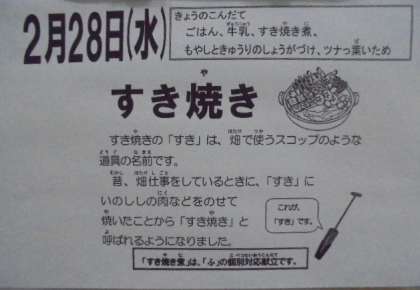 2月28日(水)
きょうのこんだて
ごはん、牛乳、すき焼き煮、
もやしときゅうりのしょうがづけ、ツナっ葉いため
すき焼き
すき焼きの「すき」は、畑で使うスコップのような
道具の名前です。
昔、畑仕事をしているときに、「すき」に
いのししの肉などをのせて
焼いたことから「すき焼き」と
呼ばれるようになりました。
これが、
「すき」です。
「すき焼き煮」は、「ふ」の個別対応献立です。